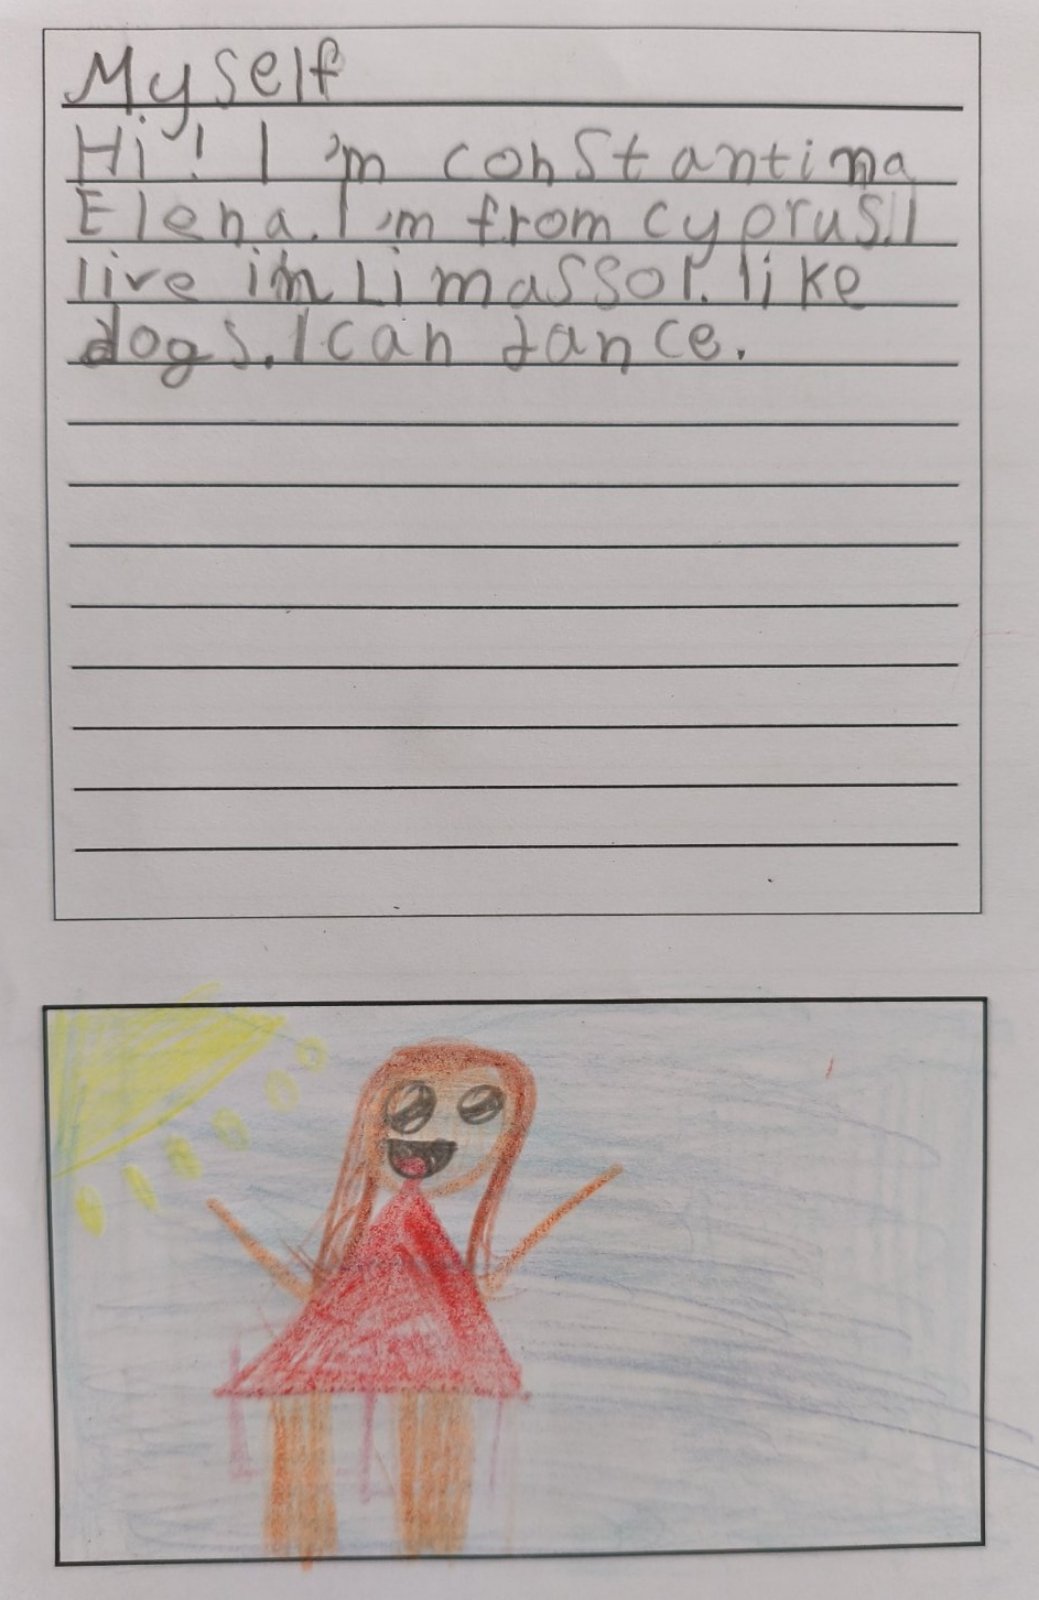 Myself
Hi! I'm constantina
Elena. I'm from cyprus. I
live in Limassol. like
dogs. I can dance.